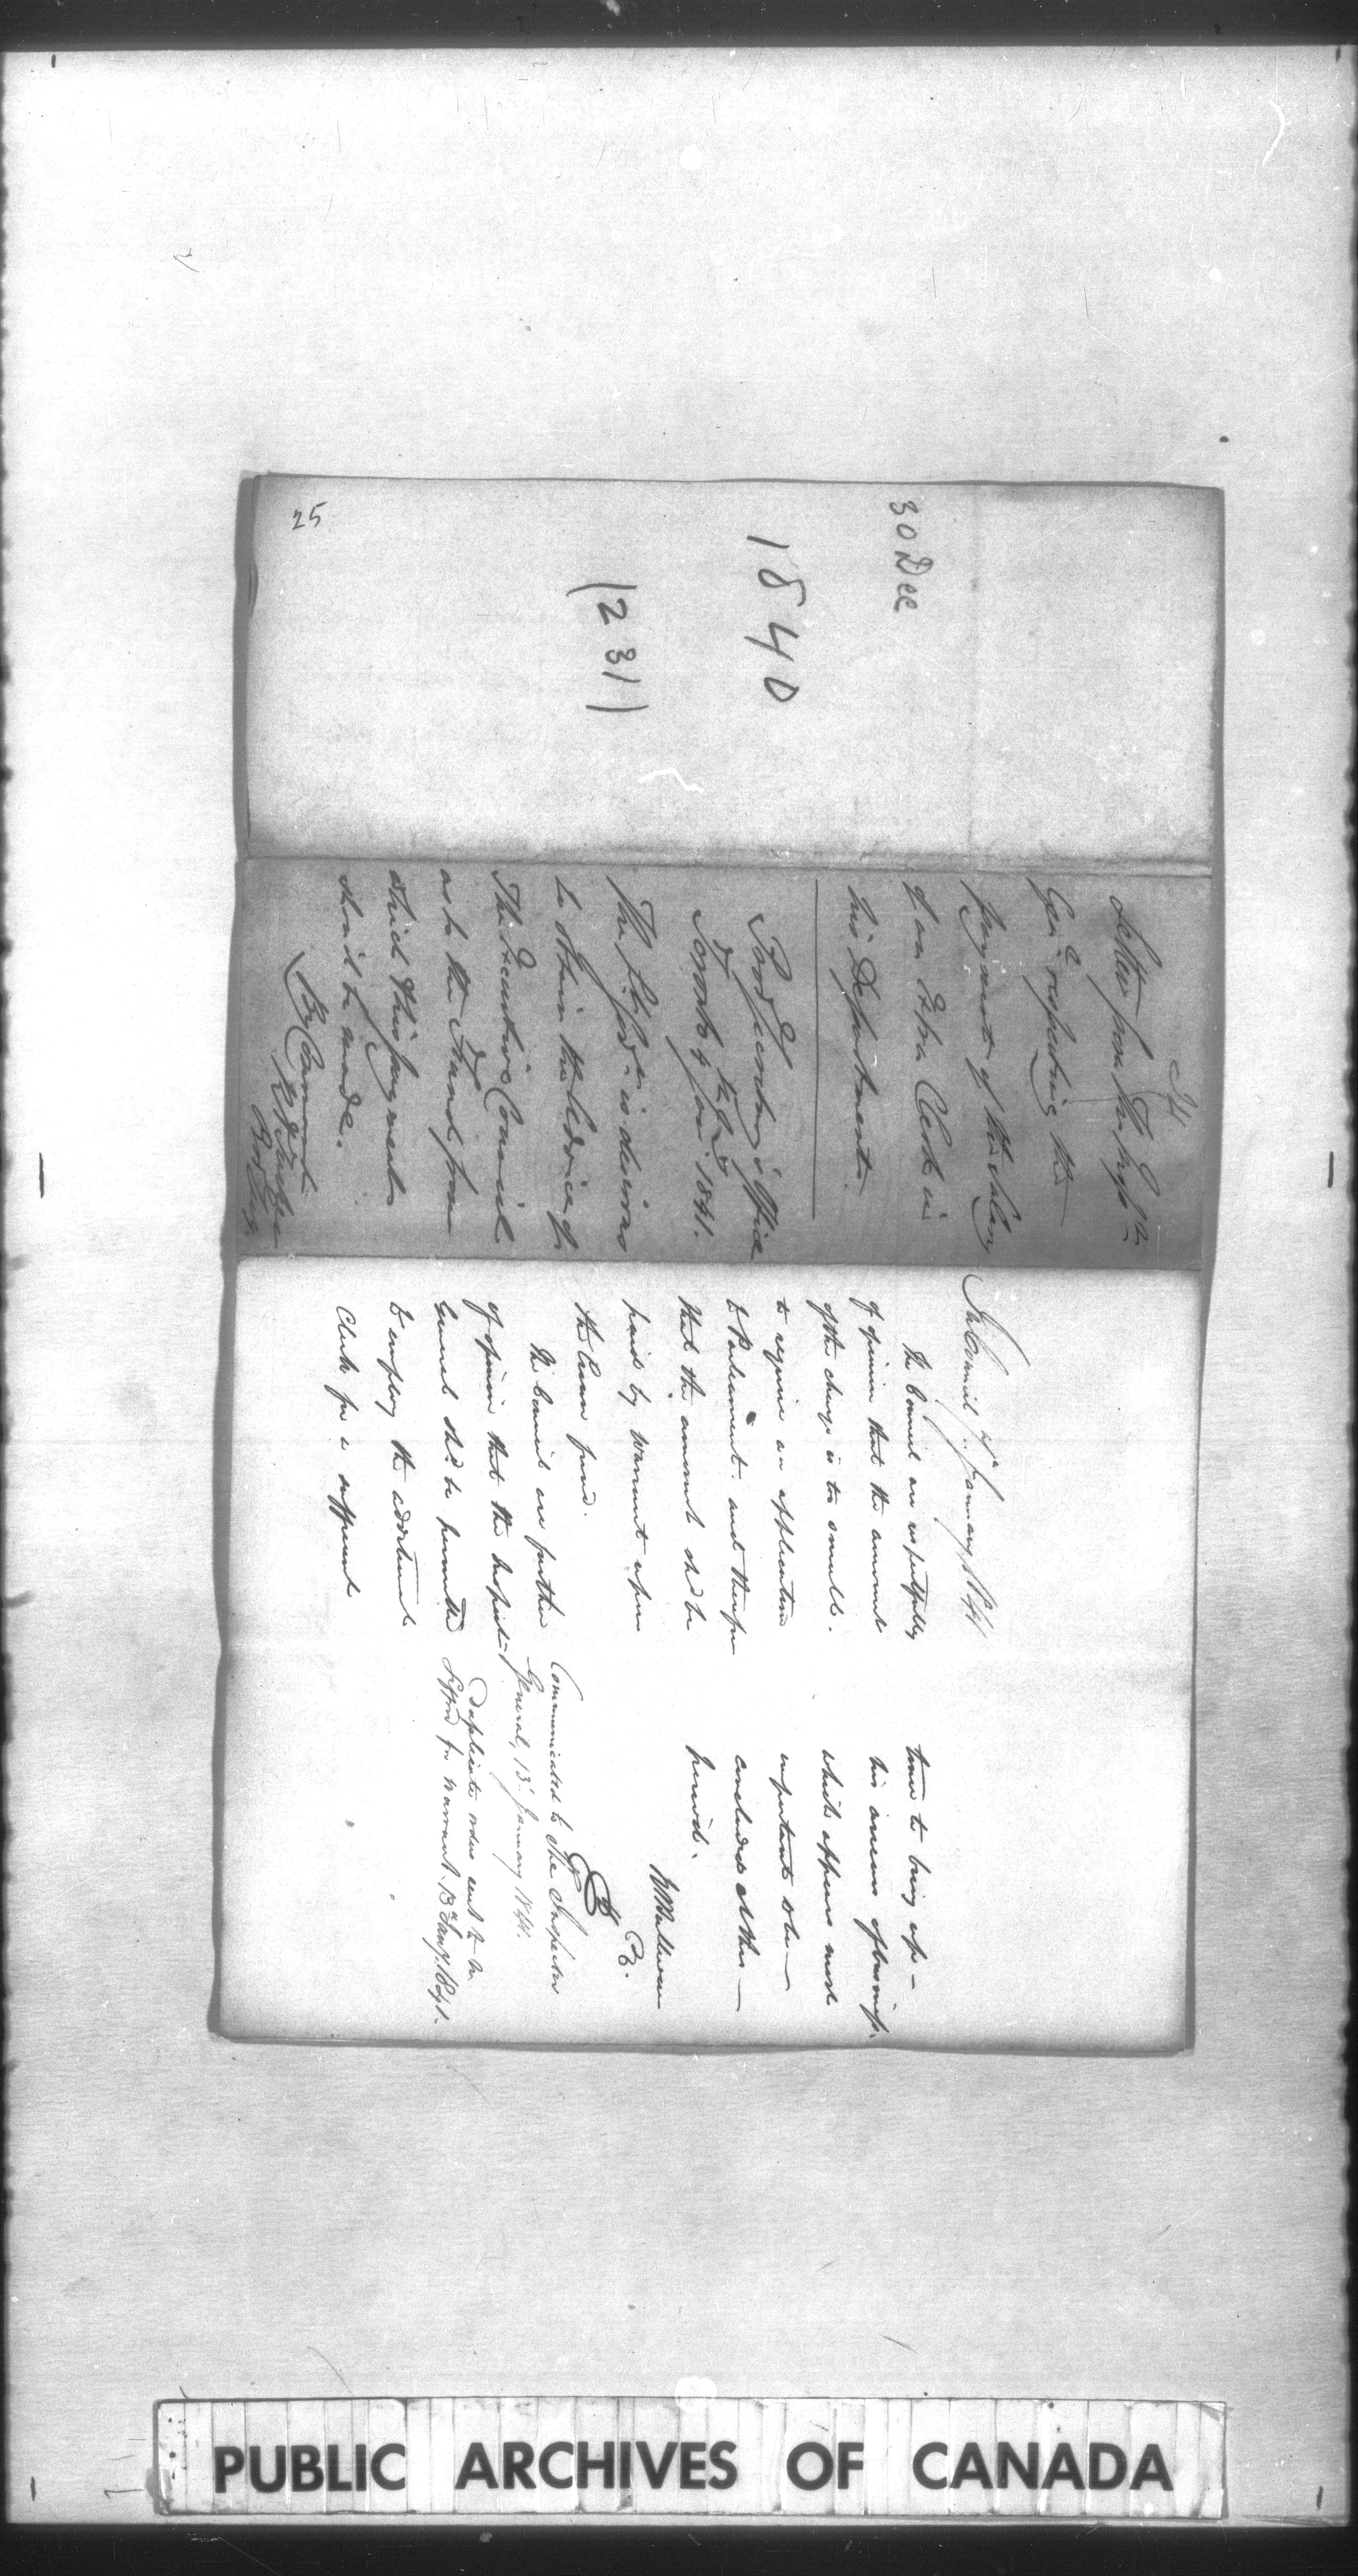 25
30 Dec
1840
(231)
Letter from the Insp.r
Gen.l respecting the
payment of the Salary
of an Extra Clerk in
his Department.
Gov.t Secretary's Office
Toronto 2.d Jan: 1841.
The Lt. Gov.r is desirous
to obtain the Advice of
The Executive Council
as to the Fund from
which this payment
should be made.
By Command
In Council 7th January 1841
The Council are respectfully
of opinion that the amount
of the charge is too small
to require an application
to Parliament and therefore
that the amount shd be
paid by warrant upon
the Crown fund.
The Council are further
of opinion that the Inspector
General shd. be permitted
to employ the additional
Clerk for a sufficient
time to bring up –
his arrears of business,
which appears most
important to be
concluded at this
period.
Communicated to The Inspector
General, 13 January 1841.
Duplicate order sent to the
for warrant. 13 Jany. 1841.
PUBLIC ARCHIVES OF CANADA